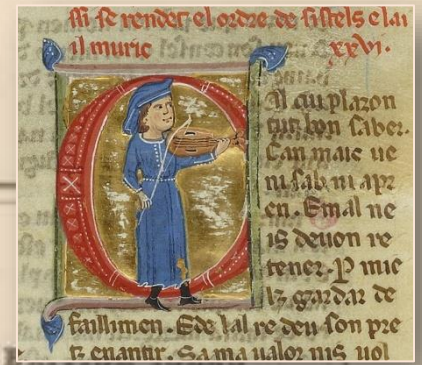 ssi se rendet el ordre de sistels e lai
il muric xxvi.
Cil cui plazon
tut bon saber.
Can mais ue
ni sab ni apr
en. E mal ne
is deuon re
tener. P mie
lz gardar de
faillimen. E de lal re deu son pre
tz enantir. Sa ma ualor nis uol